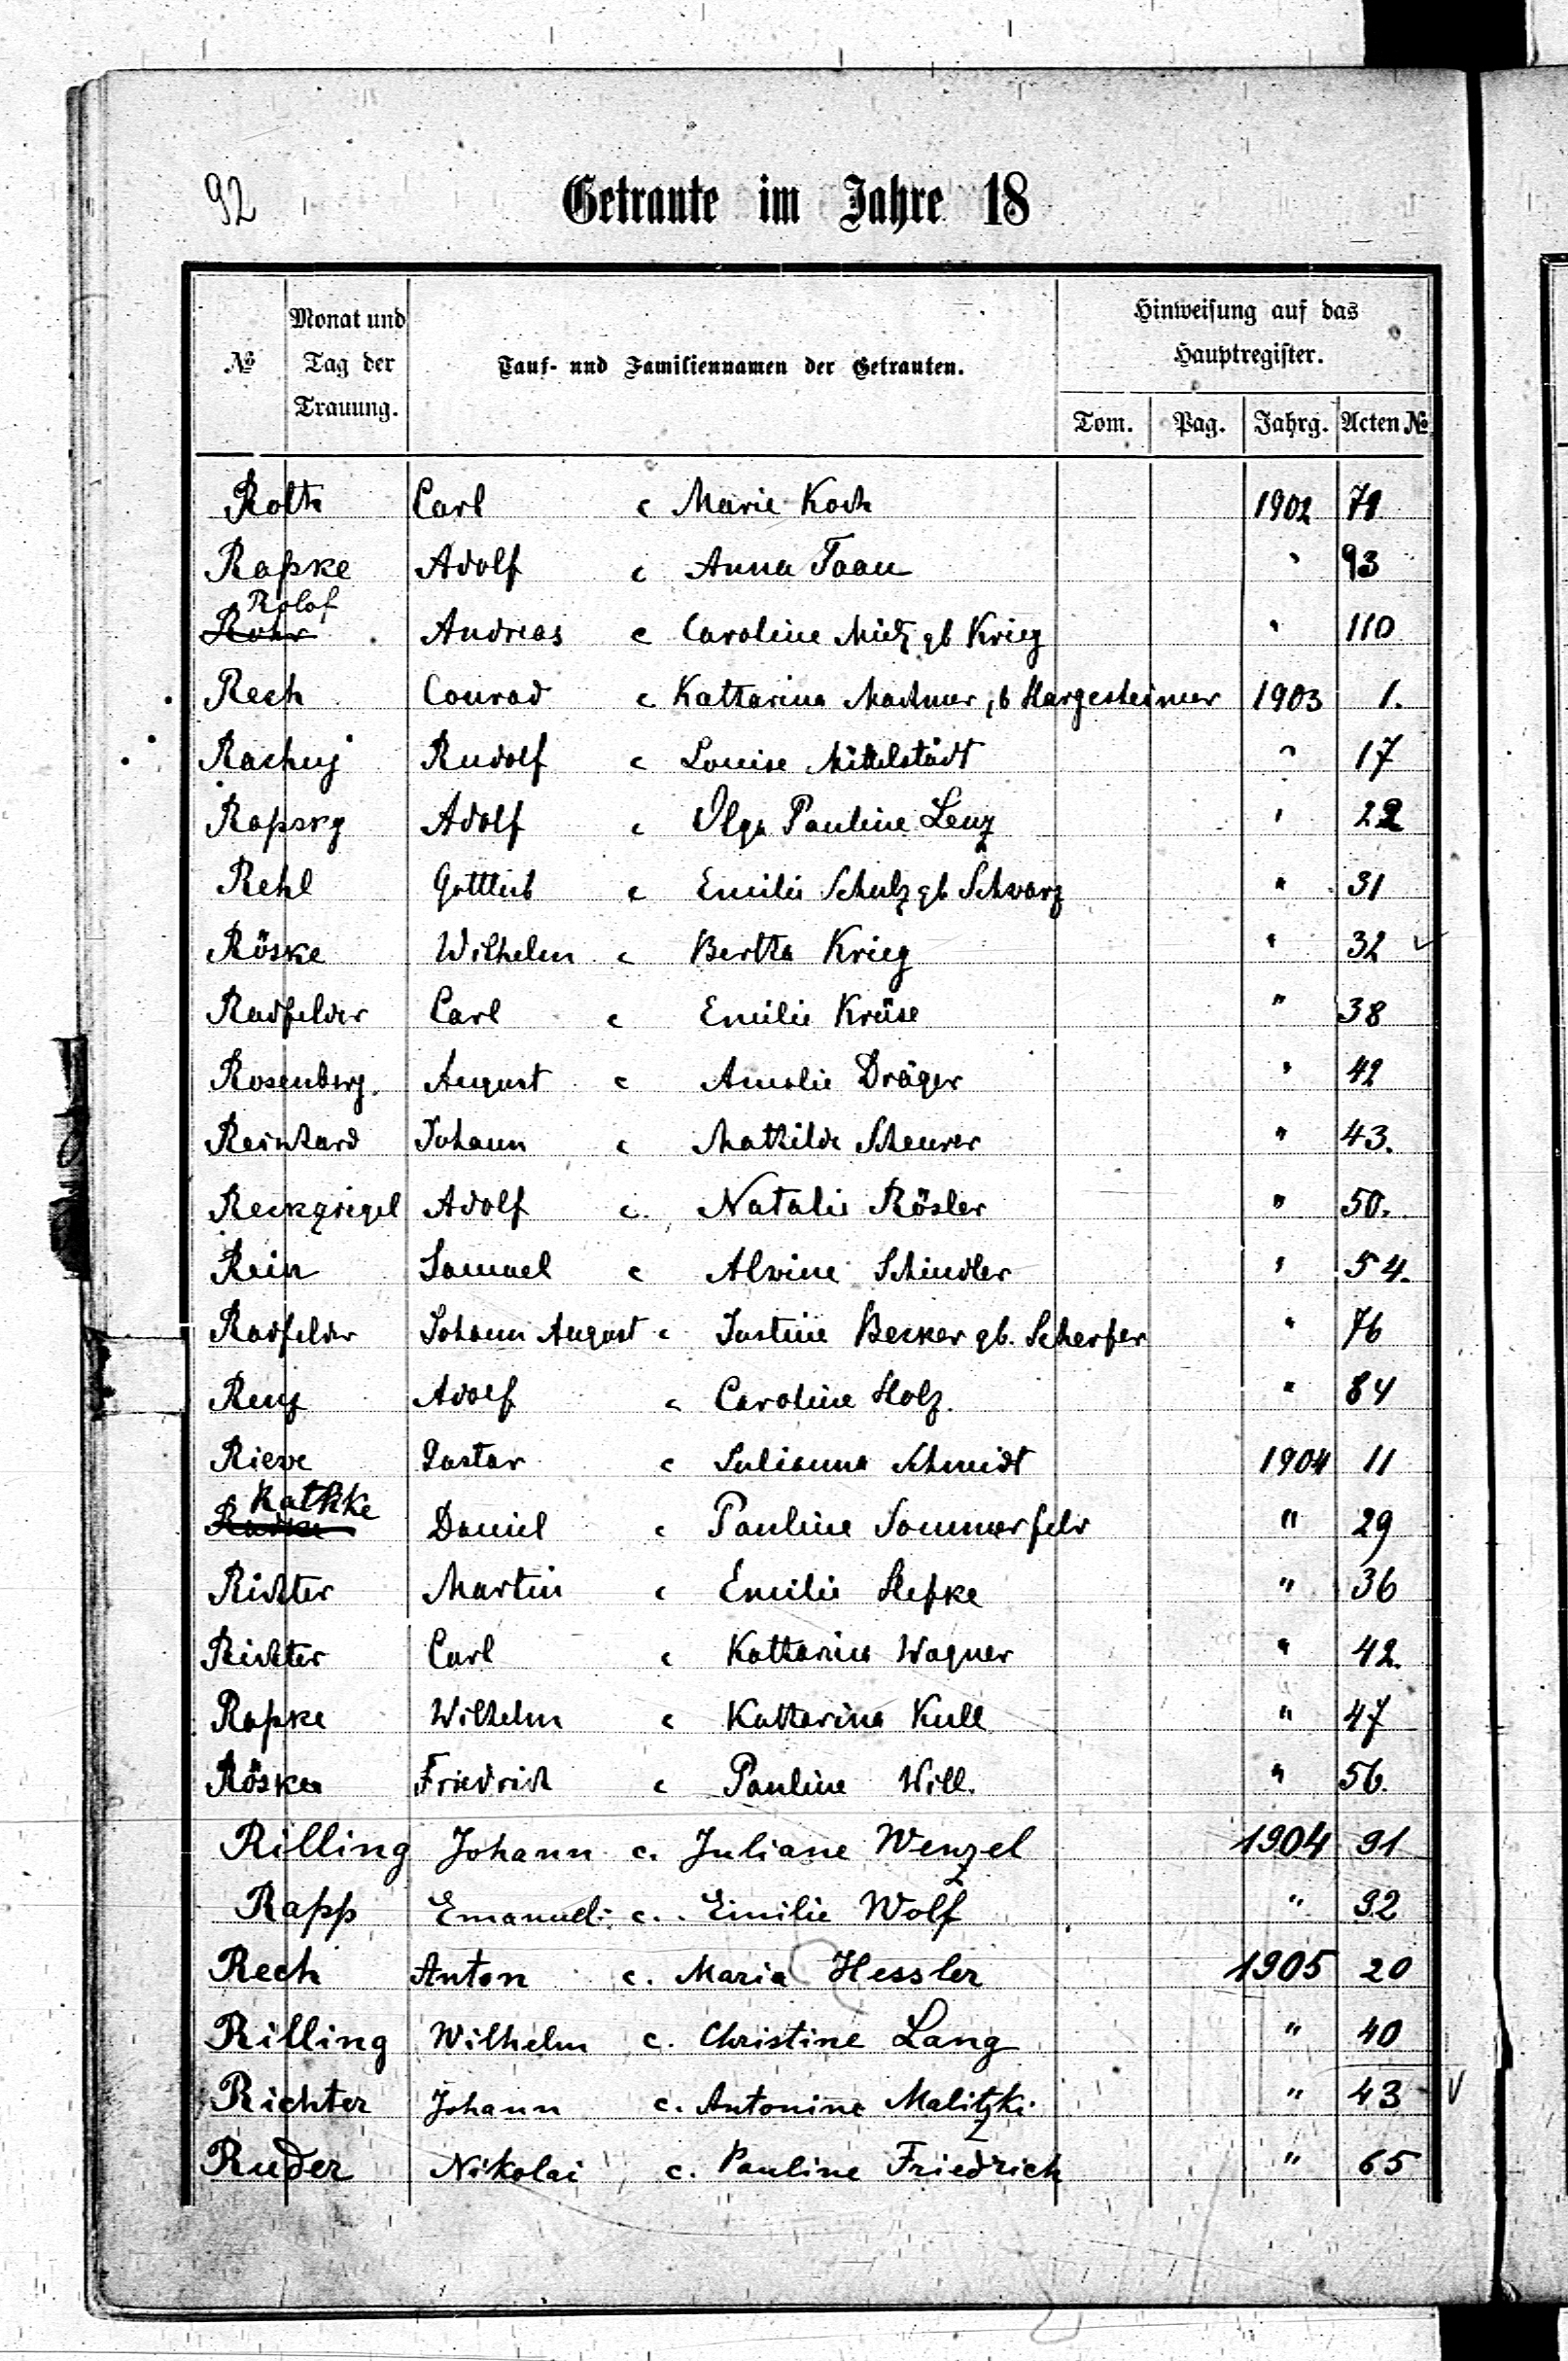 92
Getraute im Jahre 18
№ Monat und Tag der Trauung. Tauf- und Familiennamen der Getrauten. Hinweisung auf das Hauptregister.
Tom. Pag. Jahrg. Acten №
Roth Carl c Marie Koch 1902 71
Rapke Adolf c Anna Taau " 93
Rolof
Rohr Andreas c Caroline Mutz gb Krieg " 110
Rech Conrad c Katharina Machmer, b Hargesheimer 1903 1.
Rachuj Rudolf c Louise Mittelstädt " 17
Rapsky Adolf c Olga Pauline Lenz " 22
Rehl Gottlieb c Emilie Schulz gb Schwarz " 31
Röske Wilhelm c Bertha Krieg " 32
Radfelder Carl c Emilie Krüse " 38
Rosenberg. August c Amalie Dräger " 42
Reinhard Johann c Mathilde Scheurer " 43.
Reckzigel Adolf c. Natalie Rösler " 50.
Rein Samuel c Alwine Schindler " 54.
Radfelder Johann August c Justine Becker gb. Scherfer " 76
Renz Adolf c Caroline Holz. " 84
Rieve Gustav c Julianna Schmidt 1904 11
Rathke
Radke Daniel c Pauline Sommerfeld " 29
Richter Martin c Emilie Hepke " 36
Richter Carl c Katharina Wagner " 42.
Rapke Wilhelm c Katharina Kull " 47
Röske Friedrich c Pauline Will. " 56.
Rilling Johann c. Juliane Wenzel 1904 91
Rapp Emanuel c. Emilie Wolf " 92
Rech Anton c. Maria Hessler 1905 20
Rilling Wilhelm c. Christine Lang " 40
Richter Johann c. Antonine Malitzki " 43
Ruder Nikolai c. Pauline Friedrich " 65